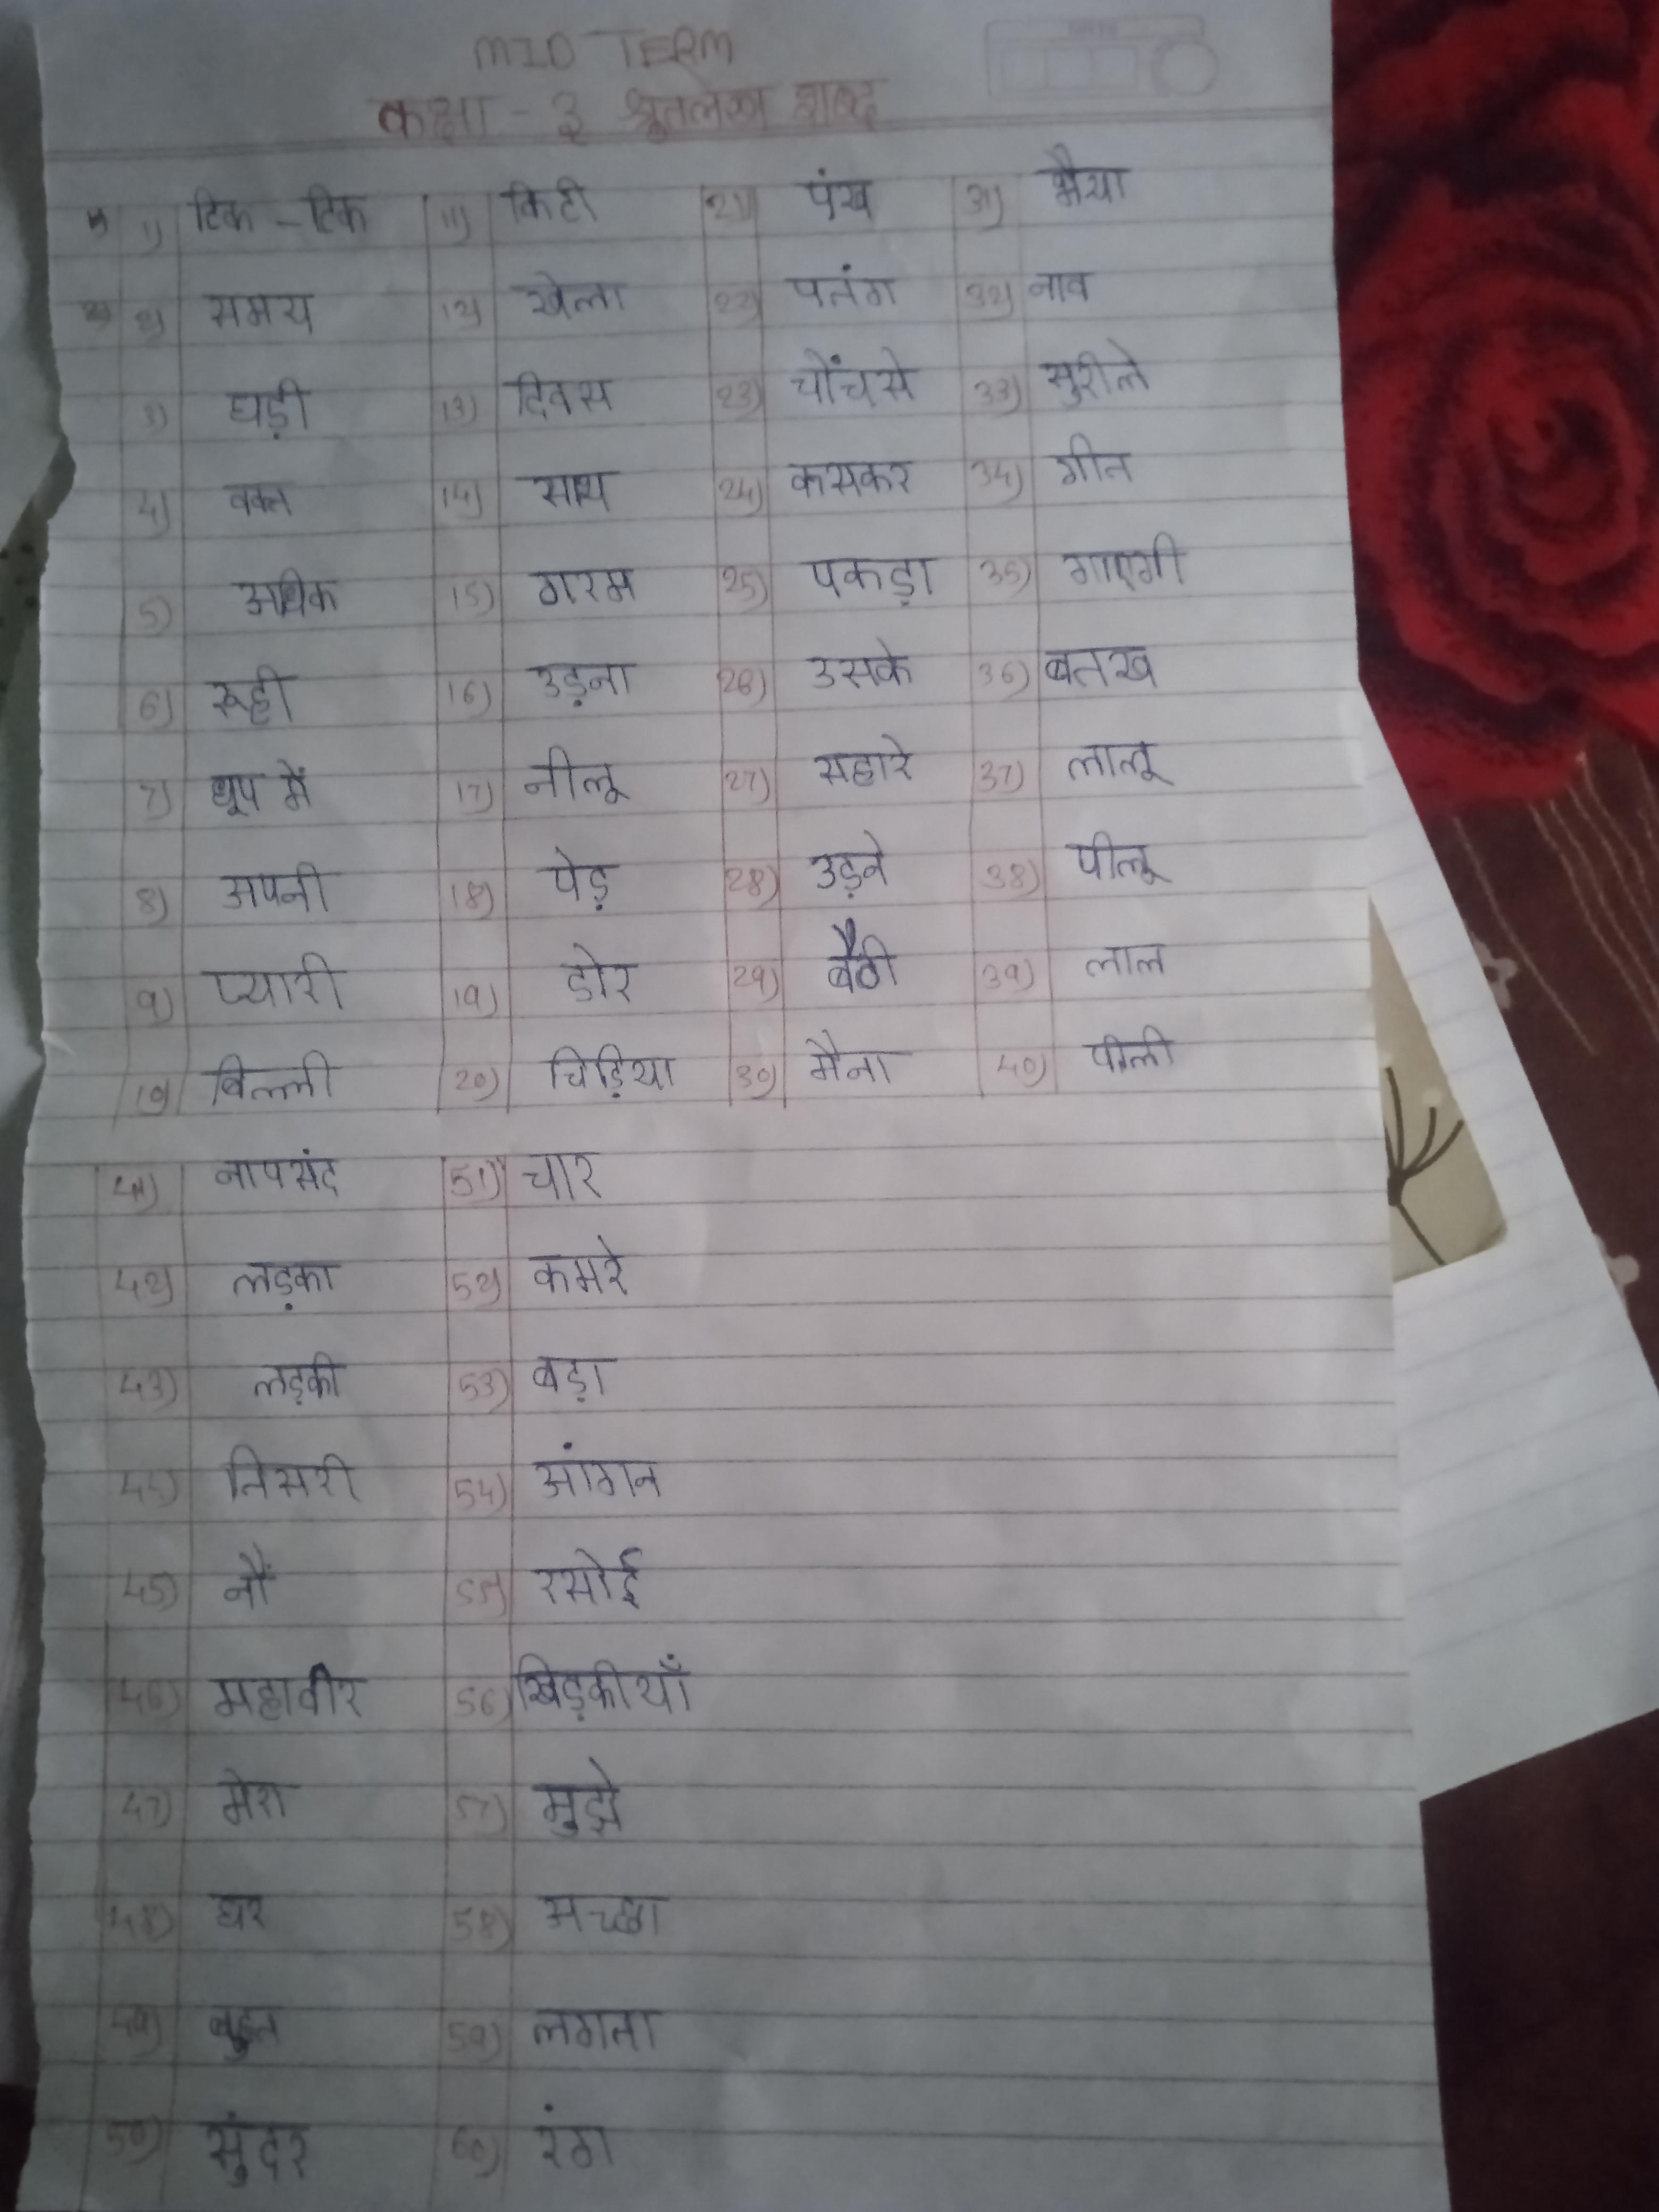 MID TERM
कक्षा - ३ श्रुतलेख शब्द
1) टिक - टिक 11) किटी 21) पंख 31) भैया
2) 2) समय 12) खेला 22) पतंग 32) नाव
3) घड़ी 13) दिवस 23) चोंच से 33) सुरीले
4) वक्त 14) साथ 24) कसकर 34) गीत
5) अधिक 15) गरम 25) पकड़ा 35) गाएगी
6) रूही 16) उड़ना 26) उसके 36) बतख
7) धूप में 17) नीलू 27) सहारे 37) लालू
8) अपनी 18) पेड़ 28) उड़ने 38) पीलू
9) प्यारी 19) डोर 29) बैठी 39) लाल
10) बिल्ली 20) चिड़िया 30) मैना 40) पीली
41) नापसंद 51) चार
42) लड़का 52) कमरे
43) लड़की 53) बड़ा
44) तिसरी 54) आंगन
45) नौं 55) रसोई
46) महावीर 56) खिड़कीयाँ
47) मेरा 57) मुझे
48) घर 58)
49) बहुत 59) लगता
50) सुंदर 60) रंग